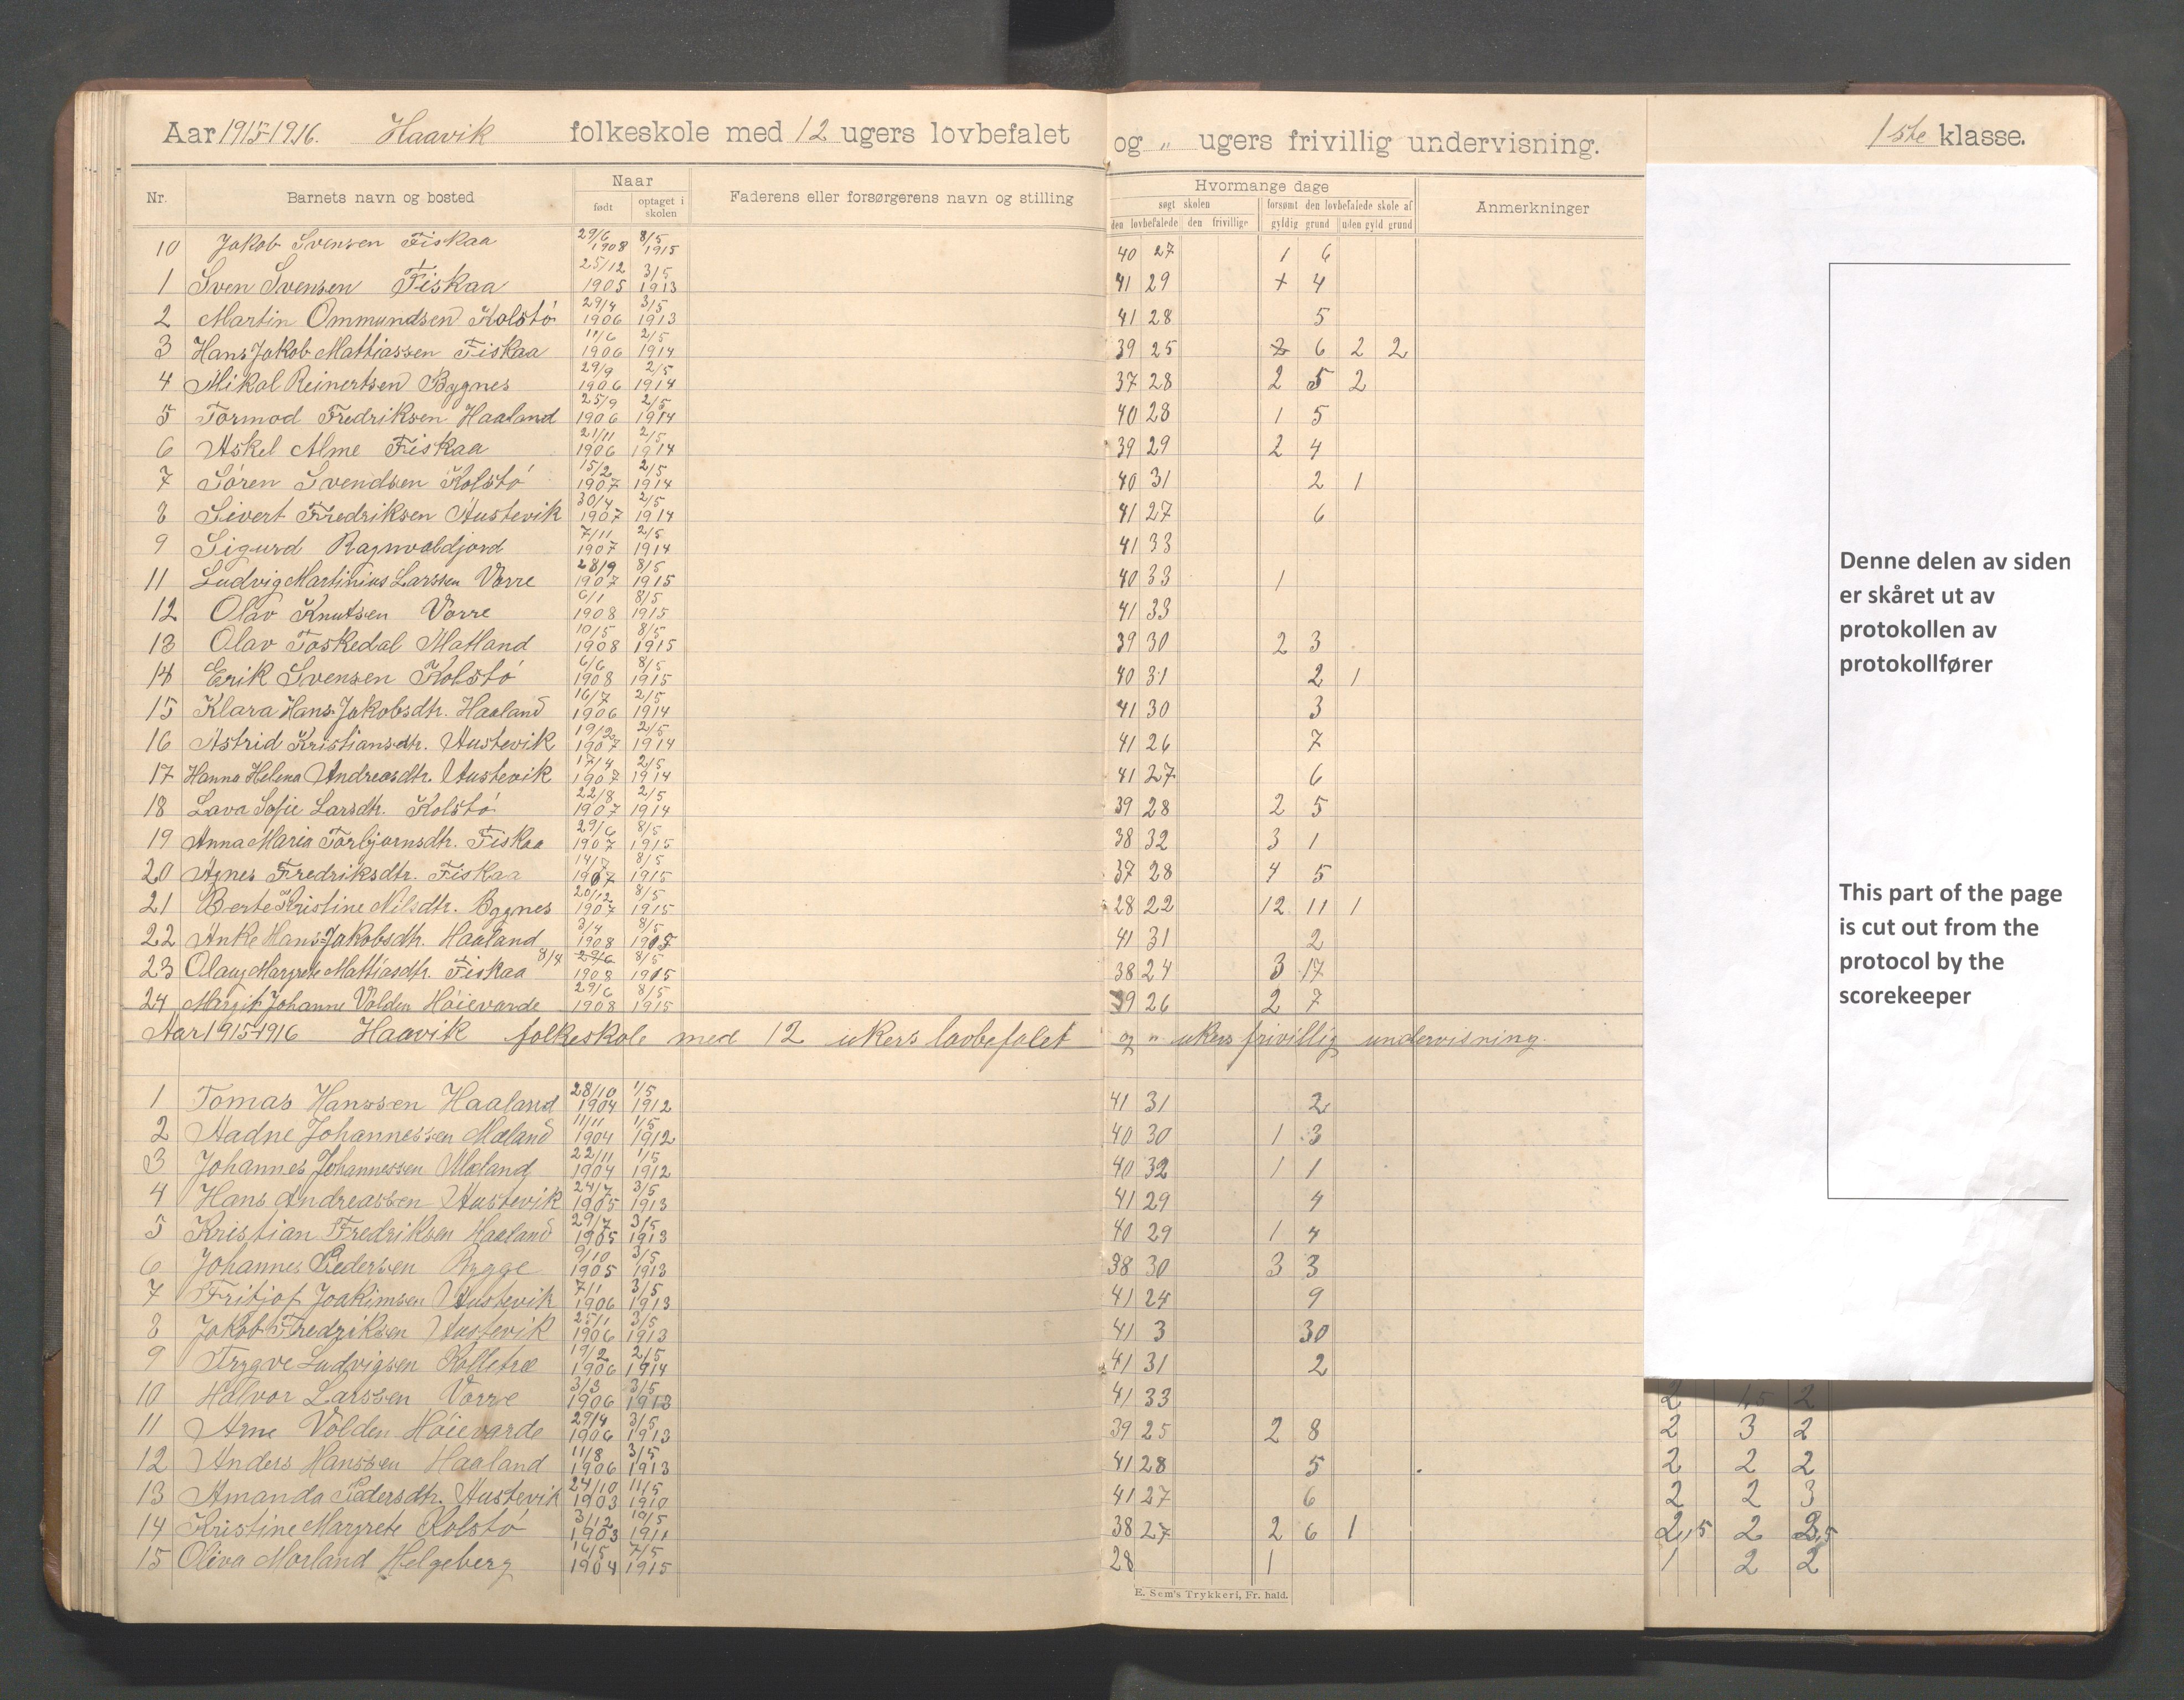 Aar 1915-1916. Haavik folkeskole med 12 ugers lovbefalet og " ugers frivillig undervisning. 1ste klasse.
Nr. Barnets navn og bosted Naar født optaget i skolen Faderens eller forsørgerens navn og stilling Hvormange dage søgt skolen den lovbefalede den frivillige forsømt den lovbefalede skole af gyldig grund uden gyld grund Anmerkninger
10 Jakob Svensen Fiskaa 29/6 1908 8/5 1915 40 27 1 6
1 Sven Svensen Fiskaa 25/12 1905 3/5 1913 41 29 + 4
2 Martin Ommundsen Kolstø 29/4 1906 3/5 1913 41 28 5
3 Hans Jakob Mattiassen Fiskaa 11/6 1906 2/5 1914 39 25 2 6 2 2
4 Mikal Reinertsen Bygnes 29/9 1906 2/5 1914 37 28 2 5 2
5 Tormod Fredriksen Haaland 25/9 1906 2/5 1914 40 28 1 5
6 Askel Alme Fiskaa 21/11 1906 2/5 1914 39 29 2 4
7 Søren Svendsen Kolstø 15/2 1907 2/5 1914 40 31 2 1
8 Sivert Fredriksen Austevik 30/4 1907 2/5 1914 41 27 6
9 Sigurd Ragnvaldjord 7/11 1907 2/5 1914 41 33
11 Ludvig Martinius Larssen Vorre 28/9 1907 8/5 1915 40 33 1
12 Olav Knutsen Vorre 6/1 1908 8/5 1915 41 33
13 Olav Toskedal Matland 10/5 1908 8/5 1915 39 30 2 3
14 Erik Svensen Kolstø 6/6 1908 8/5 1915 40 31 2 1
15 Klara Hans Jakobsdtr. Haaland 16/7 1906 2/5 1914 41 30 3
16 Astrid Kristiansdtr. Austevik 19/2 1907 2/5 1914 41 26 7
17 Hanna Helena Andreasdtr. Austevik 17/4 1907 2/5 1914 41 27 6
18 Lava Sofie Larsdtr. Kolstø 22/8 1907 2/5 1914 39 28 2 5
19 Anna Maria Torbjørnsdtr. Fiskaa 29/6 1907 8/5 1915 38 32 3 1
20 Agnes Fredriksdtr. Fiskaa 14/7 1907 8/5 1915 37 28 4 5
21 Berte Kristine Nilsdtr. Bygnes 20/12 1907 8/5 1915 28 22 12 11 1
22 Anke Hans Jakobsdtr. Haaland 3/4 1908 8/5 1915 41 31 2
23 Olaug Margrete Mattiasdtr. Fiskaa 8/8 29/6 1908 8/5 1915 38 24 3 17
24 Margit Johanne Volden Høievarde 29/6 1908 8/5 1915 39 26 2 7
Aar 1915-1916 Haavik folkeskole med 12 ukers lovbefalet og " ukers frivillig undervisning.
1 Tomas Hanssen Haaland 28/10 1904 1/5 1912 41 31 2
2 Aadne Johannessen Mæland 11/11 1904 1/5 1912 40 30 1 3
3 Johannes Johannessen Mæland 22/11 1904 1/5 1912 40 32 1 1
4 Hans Andreassen Austevik 24/7 1905 3/5 1913 41 29 4
5 Kristian Fredriksen Haaland 29/7 1905 3/5 1913 40 29 1 4
6 Johannes Pedersen Rygge 9/10 1905 3/5 1913 38 30 3 3
7 Fritjof Joakimsen Austevik 7/1 1906 3/5 1913 41 24 9
8 Jakob Fredriksen Austevik 25/1 1906 3/5 1913 41 3 30
9 Trygve Ludvigsen Kolletræ 19/2 1906 2/5 1914 41 31 2
10 Halvor Larssen Vorre 3/3 1906 3/5 1913 41 33 2 1,5 2
11 Arne Volden Høievarde 29/4 1906 3/5 1913 39 25 2 8 2 3 2
12 Anders Hanssen Haaland 11/8 1906 3/5 1913 41 28 5 2 2 2
13 Amanda Pedersdtr. Austevik 24/10 1903 11/5 1910 41 27 6 2 2 3
14 Kristine Margrete Kolstø 3/12 1903 10/5 1911 38 27 2 6 1 2,5 2 2,5
15 Oliva Morland Helgeberg 16/5 1904 7/5 1915 28 1 1 2 2
E. Sem's Trykkeri, Fr. hald.
Denne delen av siden
er skåret ut av
protokollen av
protokollfører
This part of the page
is cut out from the
protocol by the
scorekeeper